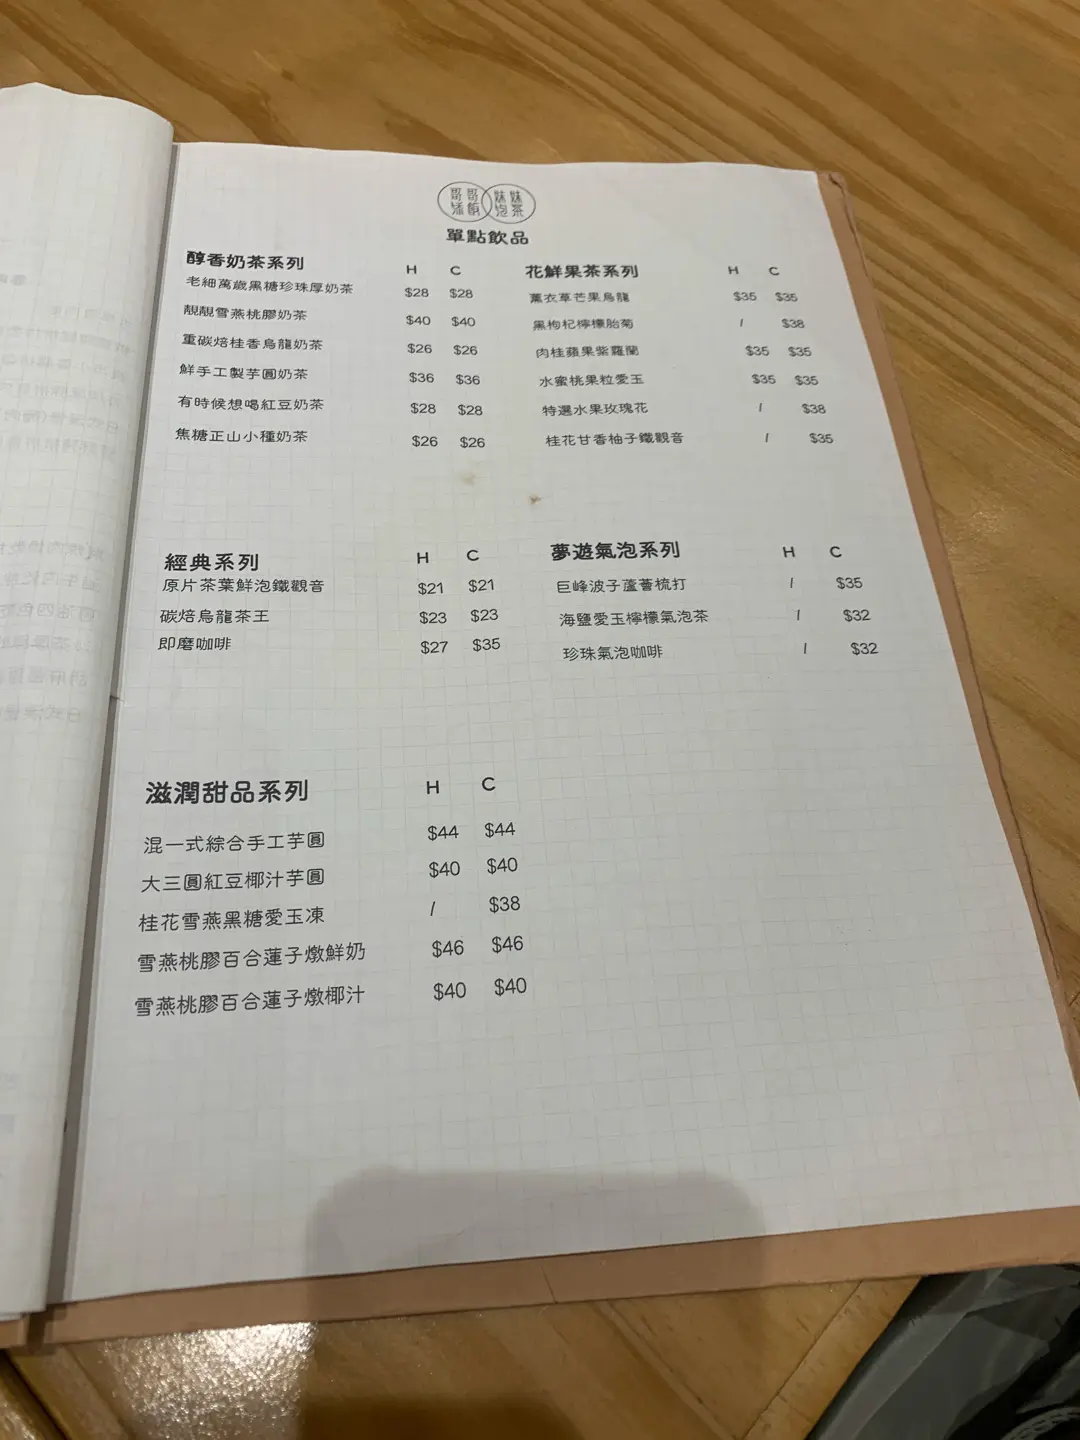 哥哥 妹妹
泡茶
單點飲品
醇香奶茶系列 H C
老細萬歲黑糖珍珠厚奶茶 $28 $28
靚靚雪燕桃膠奶茶 $40 $40
重碳焙桂香烏龍奶茶 $26 $26
鮮手工製芋圓奶茶 $36 $36
有時候想喝紅豆奶茶 $28 $28
焦糖正山小種奶茶 $26 $26
花鮮果茶系列 H C
薰衣草芒果烏龍 $35 $35
黑枸杞檸檬胎菊 / $38
肉桂蘋果紫蘿蘭 $35 $35
水蜜桃果粒愛玉 $35 $35
特選水果玫瑰花 / $38
桂花甘香柚子鐵觀音 / $35
經典系列 H C
原片茶葉鮮泡鐵觀音 $21 $21
碳焙烏龍茶王 $23 $23
即磨咖啡 $27 $35
夢遊氣泡系列 H C
巨峰波子蘆薈梳打 / $35
海鹽愛玉檸檬氣泡茶 / $32
珍珠氣泡咖啡 / $32
滋潤甜品系列 H C
混一式綜合手工芋圓 $44 $44
大三圓紅豆椰汁芋圓 $40 $40
桂花雪燕黑糖愛玉凍 / $38
雪燕桃膠百合蓮子燉鮮奶 $46 $46
雪燕桃膠百合蓮子燉椰汁 $40 $40